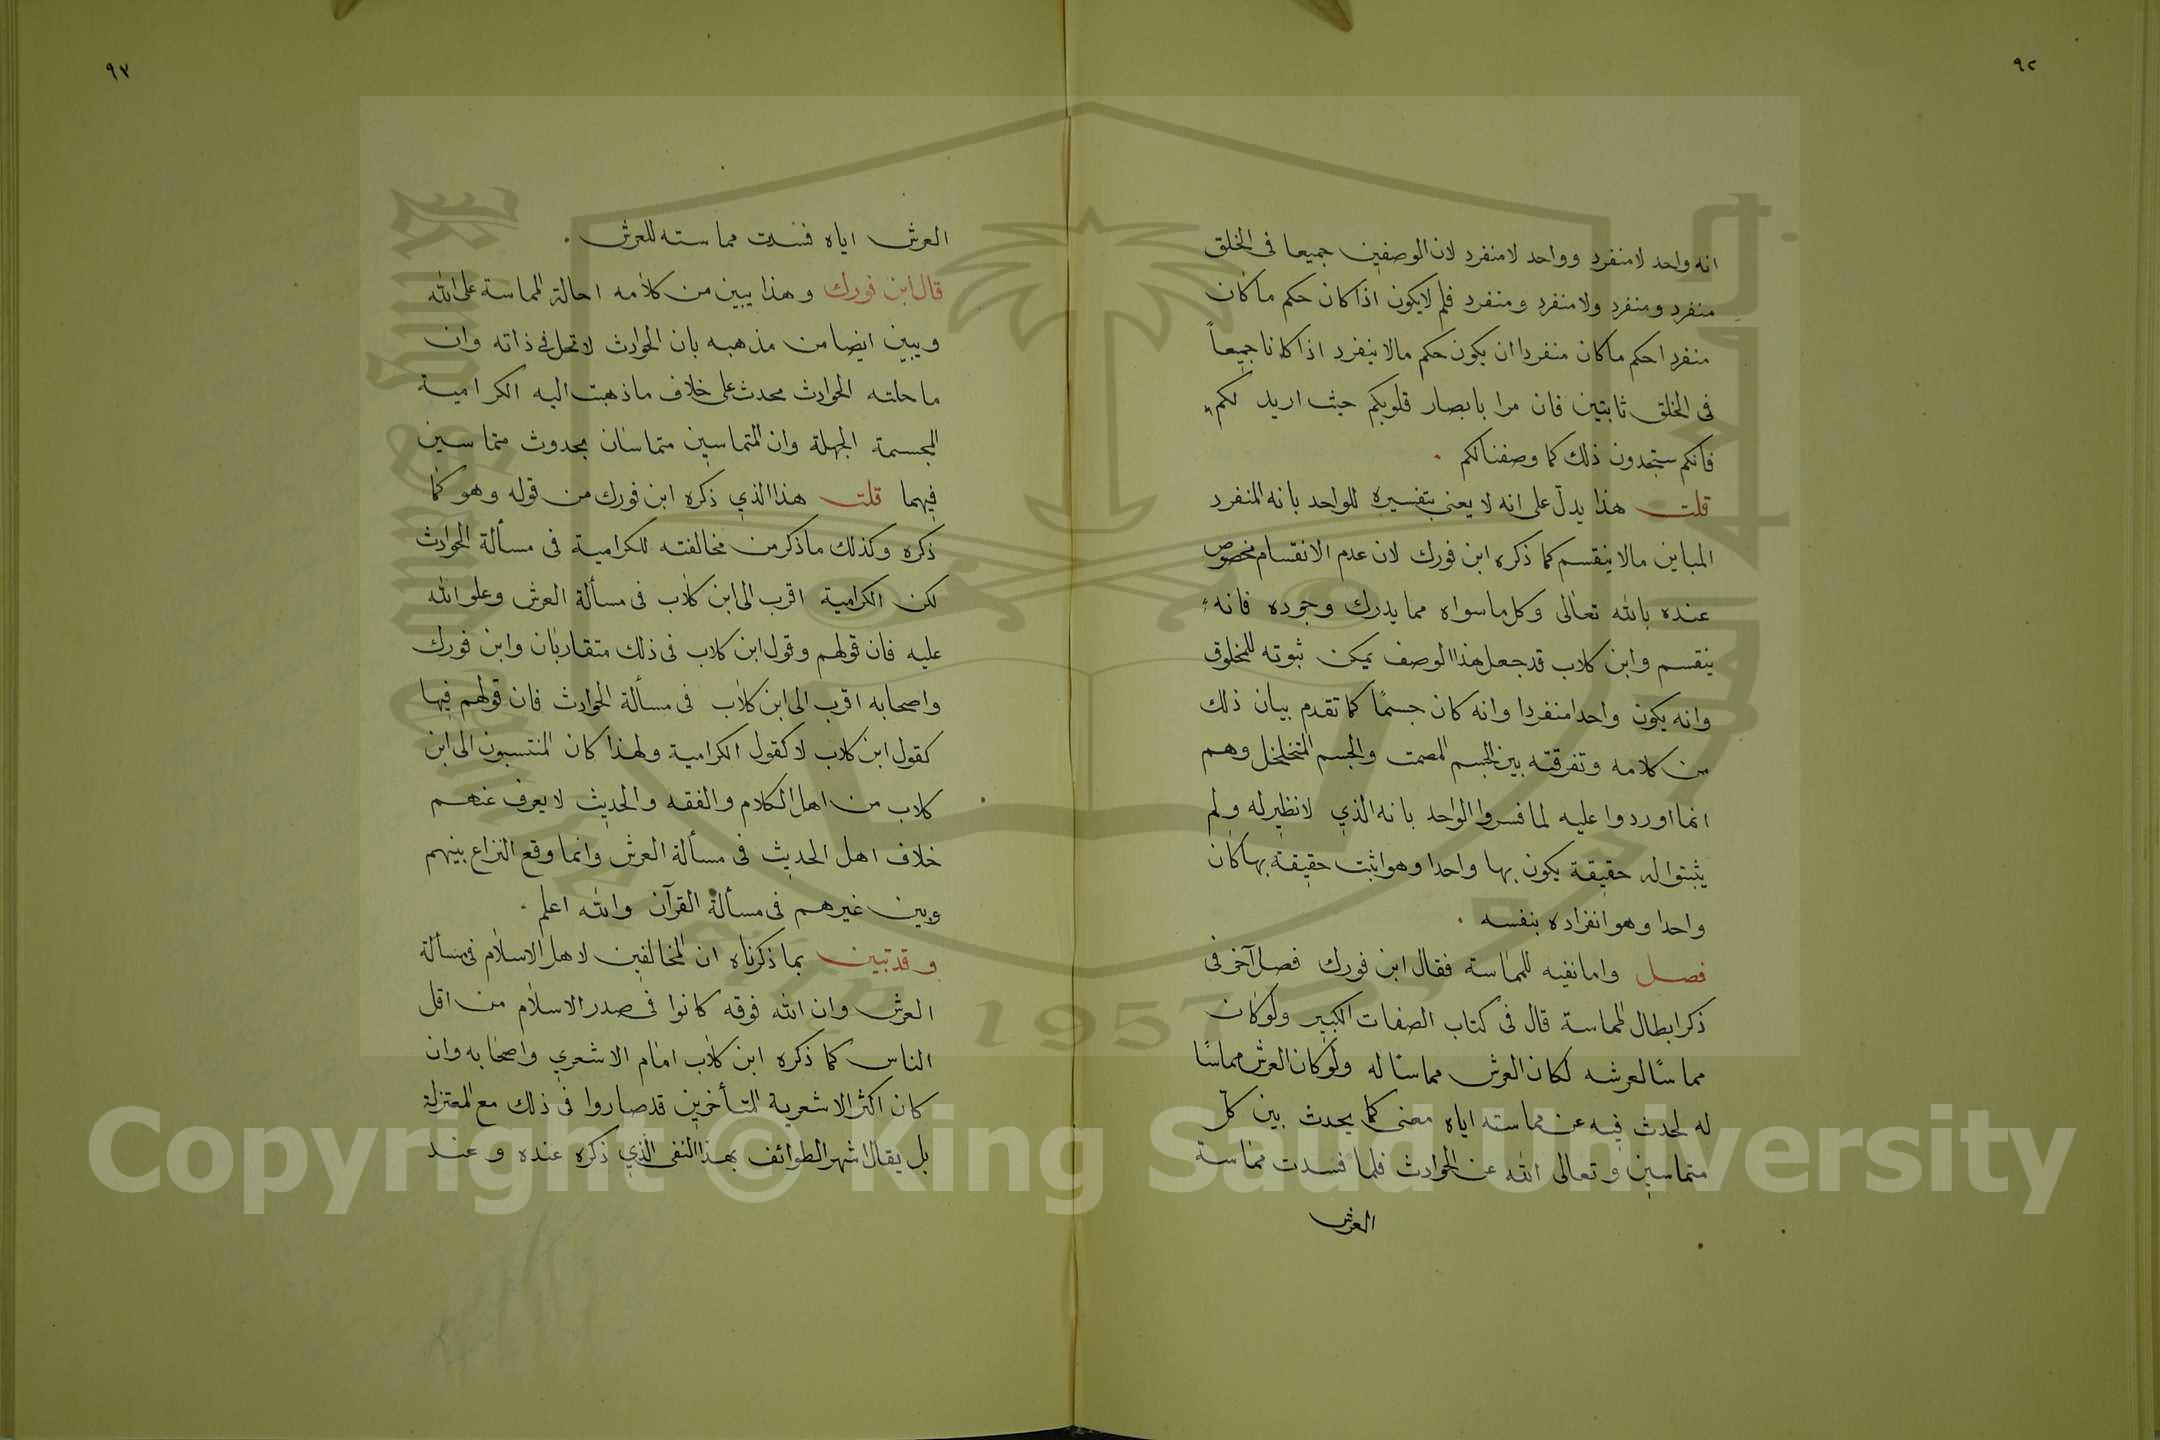 ٩٢
انه واحد لا منفرد وواحد لا منفرد لان الوصفين جميعا في الخلق
منفرد ومنفرد ولا منفرد ومنفرد فلم لا يكون اذا كان حكم ما كان
منفردا حكم ما كان منفردا ان يكون حكم ما لا ينفرد اذا كانا جميعاً
في الخلق ثابتين فان مرا بابصار قلوبكم حيث اريد لكم
فانكم ستجدون ذلك كما وصفنا لكم
قلت هذا يدل على انه لا يعني بتفسيره للواحد بانه المنفرد
المباين مالا ينقسم كما ذكره ابن فورك لان عدم الانقسام مخصوص
عنده بالله تعالى وكل ما سواه مما يدرك وجوده فانه
ينقسم وابن كلاب قد جعل هذا الوصف يمكن ثبوته للمخلوق
وانه يكون واحدا منفردا وانه كان جسمًا كما تقدم بيان ذلك
من كلامه وتفرقته بين الجسم المصمت والجسم المتخلخل وهم
انما اوردوا عليه لما فسروا الواحد بانه الذي لا نظير له ولم
يثبتوا له حقيقة يكون بها واحدا وهو اثبت حقيقة بها كان
واحدا وهو انفراده بنفسه
فصل واما نفيه للمماسة فقال ابن فورك فصل آخر في
ذكر ابطال المماسة قال في كتاب الصفات الكبير ولو كان
مماسًا لعرشه لكان العرش مماسًا له ولو كان العرش مماسًا
له لحدث فيه عن مماسته اياه معنى كما يحدث بين كل
متماسين وتعالى الله عن الحوادث فلما فسدت مماسة
العرش
٩٣
العرش اياه فسدت مماسته للعرش
قال ابن فورك وهذا يبين من كلامه احالة المماسة على الله
ويبين ايضا من مذهبه بان الحوادث لا تحل في ذاته وان
ما حلته الحوادث محدث على خلاف ما ذهبت اليه الكرامية
المجسمة الجهلة وان المتماسين متماسان بحدوث متماسين
فيهما قلت هذا الذي ذكره ابن فورك من قوله وهو كما
ذكره وكذلك ما ذكر من مخالفته للكرامية في مسألة الحوادث
لكن الكرامية اقرب الى ابن كلاب في مسألة العرش وعلو الله
عليه فان قولهم وقول ابن كلاب في ذلك متقاربان وابن فورك
واصحابه اقرب الى ابن كلاب في مسألة الحوادث فان قولهم فيها
كقول ابن كلاب لا كقول الكرامية ولهذا كان المنتسبون الى ابن
كلاب من اهل الكلام والفقه والحديث لا يعرف عنهم
خلاف اهل الحديث في مسألة العرش وانما وقع النزاع بينهم
وبين غيرهم في مسألة القرآن والله اعلم
وقد تبين بما ذكرناه ان المخالفين لاهل الاسلام في مسألة
العرش وان الله فوقه كانوا في صدر الاسلام من اقل
الناس كما ذكره ابن كلاب امام الاشعري واصحابه وان
كان اكثر الاشعرية المتأخرين قد صاروا في ذلك مع المعتزلة
بل يقال اشهر الطوائف بهذا النفي الذي ذكره عنده وعند
1957
Copyright © King Saud University